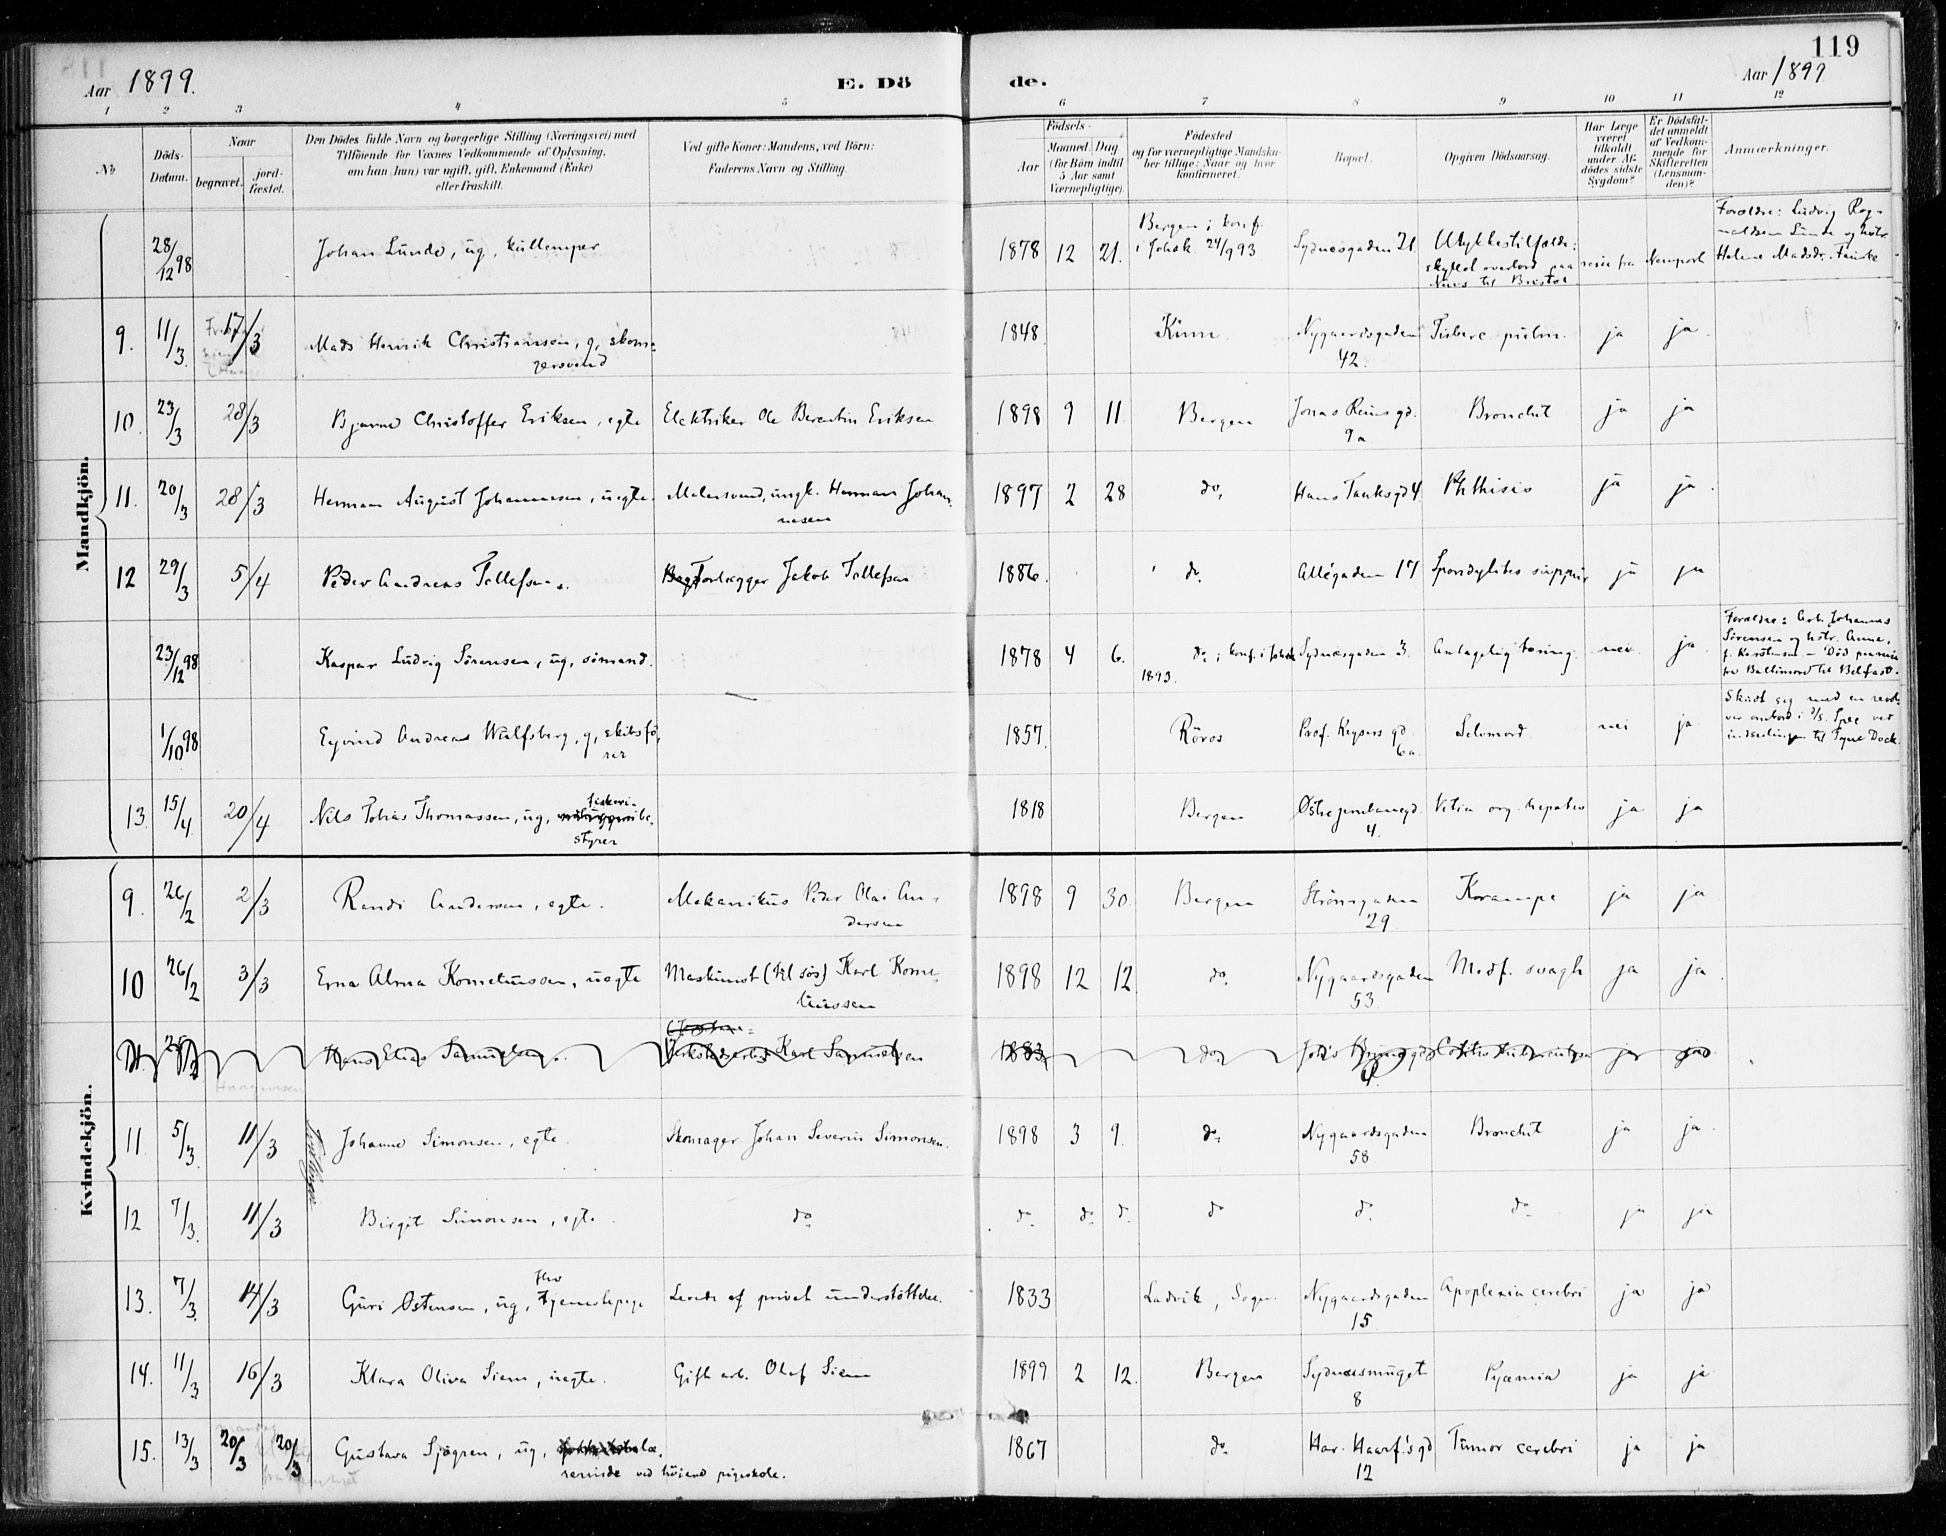 119
Aar 1899. E. Dö de. Aar 1899
1 2 3 4 5 6 7 8 9 10 11 12
No
Döds-Datum.
Naar
begravet. jordfæstet.
Den Dödes fulde Navn og borgerlige Stilling (Næringsvei) med
Tilföiende for Voxnes Vedkommende af Oplysning,
om han (hun) var ugift, gift, Enkemand (Enke)
eller fraskilt.
Ved gifte Koner: Mandens, ved Börn:
Faderens Navn og Stilling.
Födsels-
Aar Maaned. Dag
(for Börn indtil
5 Aar samt
Værnepligtige).
Födested
og for værnepligtige Mandskaber tillige: Naar og hvor
konfirmeret.
Bopæl.
Opgiven Dödsaarsag.
Har Læge
været
tilkaldt
under Afdödes sidste
Sygdom?
Er Dödsfaldet anmeldt
af Vedkommende for
Skifteretten
(Lensmanden)?
Anmærkninger.
Mandkjön.
28/12 98 Johan Lunde, ug, kullemper 1878 12 21. Bergen; konf. i Johsk. 24/9 93 Sydnæsgaden 21 Ulykkestilfælde: skyllet overbord paa reise fra Newport News til Bristol Forældre: Ludvig Lunde og hstr. Helene Madsdr.
9. 11/3 17/3 Mads Henrik Christiansen, g, skomagersvend 1848 Kinn Nygaardsgaden 42. Tuberc. pulm. ja ja.
10. 23/3 28/3 Bjarne Christoffer Eriksen, egte Elektriker Ole Berentin Eriksen 1898 9 11. Bergen Jonas Reins gd. 9a Bronchit ja ja
11. 20/3 28/3 Herman August Johannesen, uegte. Malersvend, ungk. Herman Johannesen 1897 2 28 do, Hans Tanksgd 4. Phthisis ja ja.
12 29/3 5/4 Peder Andreas Tollefsen. Forlægger Jakob Tollefsen 1886. do. Allégaden 17 Spondylites suppur ja ja
23/12 98 Kaspar Ludvig Sörensen, ug, sömand. 1878 4 6. do; konf. i Johsk 1893. Sydnæsgaden 3. Antagelig tæring. nei. ja. Forældre: Arb. Johannes Sörensen og hstr. Anna, f. Karstensen – Död paa reise fra Baltimore til Belfast.
1/10 98 Eyvind Andreas Wulfsberg, g, skibsförer 1857. Röros Prof. Keysers gd. 6a. Selvmord. nei ja Sköt sig med en revolver ombord i d/s. Spec ved indseilingen til Tyne Dock.
13. 15/4 20/4 Nils Tobias Thomassen, ug, fiskeribestyrer 1818 Bergen Østre 4. Vitia org. hepatis ja ja
Kvindekjön.
9. 26/2 2/3 Randi Andersen, egte. Mekanikus Peder Olai Andersen 1898 9 30. Bergen Strömgaden 29 Krampe ja ja
10 26/2 3/3 Erna Alma Korneliussen, uegte Maskinist (til sös) Karl Korneliussen 1898 12 12. do. Nygaardsgaden 53 Medf. svagh ja ja.
Hans Elias Samuelsen. Karl Samuelsen 1883 do
11. 5/3 11/3 Johanne Simonsen, egte. Skomager Johan Severin Simonsen. 1898 3 9. do. Nygaardsgaden 58 Bronchit ja ja.
Tvillinger
12 7/3. 11/3 Birgit Simonsen, egte do. do. do. do. do do. do. ja ja
13. 7/3. 14/3 Guri Østensen, ug, fhv tjenestepige Levede af privat understöttelse. 1833 Ladvik, Sogn. Nygaardsgaden 15. Apoplexia cerebri ja ja
14. 11/3 16/3 Klara Oliva Siem, uegte. Gift arb. Olaf Siem 1899 2 12. Bergen Sydnæsmuget 8 Pyæmia ja ja
15. 13/3 20/3 20/3 Gustava Sjögren, ug, lærerinde ved höiere pigeskole. 1867 do. Har. Haarf.'s gd 12 Tumor cerebri ja ja